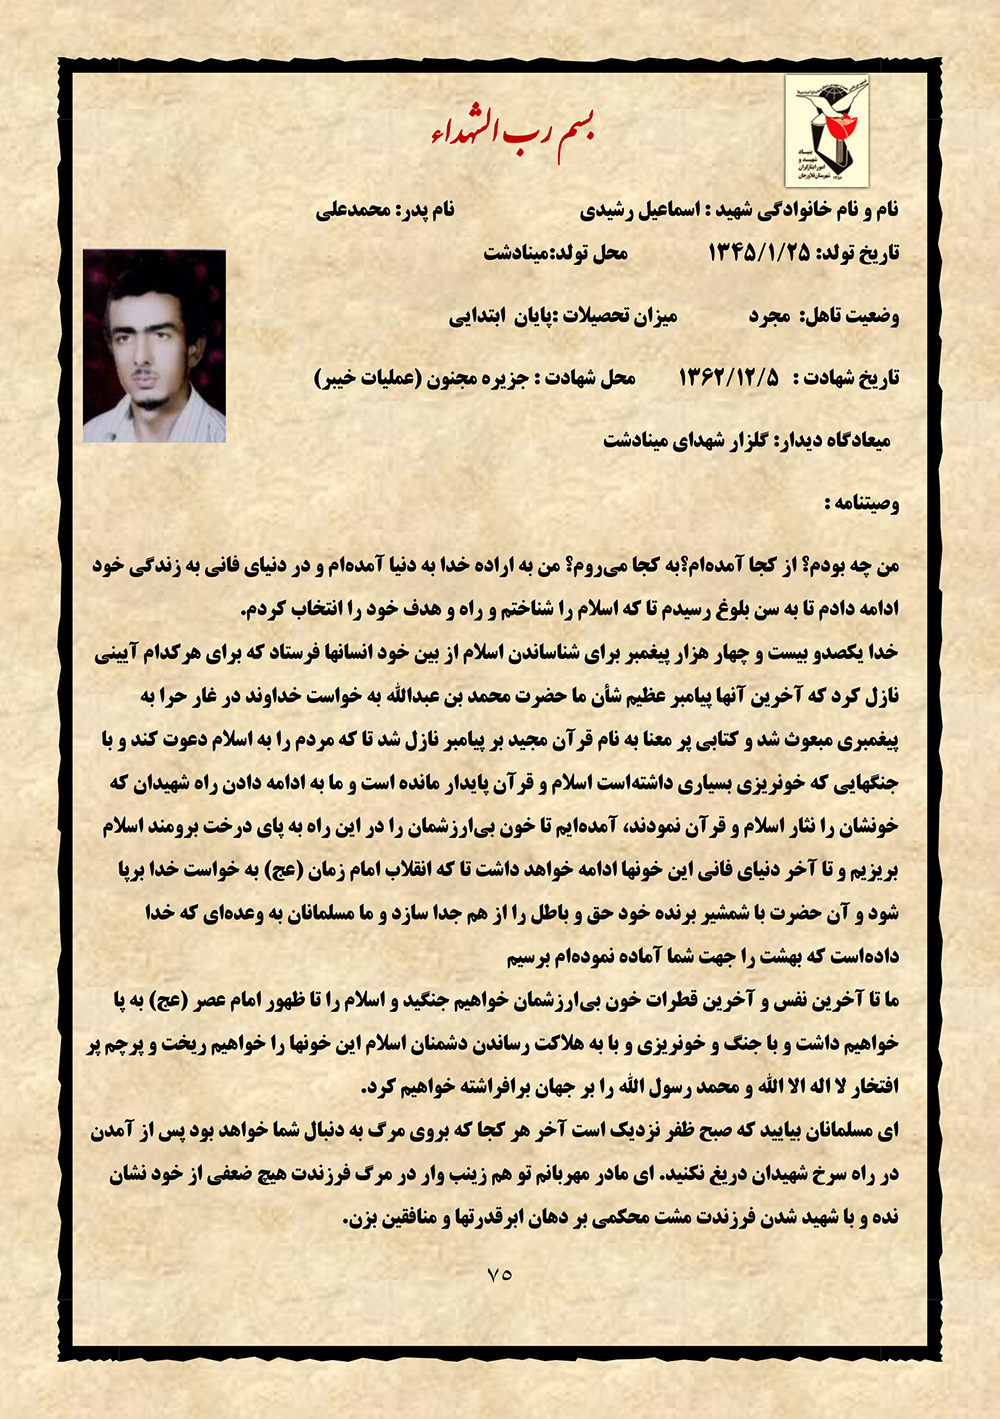 بسم رب الشهداء
بنیاد
شهید و
امور ایثارگران
شهرستان فلاورجان
نام و نام خانوادگی شهید : اسماعیل رشیدی نام پدر: محمدعلی
تاریخ تولد: ۱۳۴۵/۱/۲۵ محل تولد:مینادشت
وضعیت تاهل: مجرد میزان تحصیلات :پایان ابتدایی
تاریخ شهادت : ۱۳۶۲/۱۲/۵ محل شهادت : جزیره مجنون (عملیات خیبر)
میعادگاه دیدار: گلزار شهدای مینادشت
وصیتنامه :
من چه بودم؟ از کجا آمده‌ام؟به کجا می‌روم؟ من به اراده خدا به دنیا آمده‌ام و در دنیای فانی به زندگی خود
ادامه دادم تا به سن بلوغ رسیدم تا که اسلام را شناختم و راه و هدف خود را انتخاب کردم.
خدا یکصدو بیست و چهار هزار پیغمبر برای شناساندن اسلام از بین خود انسانها فرستاد که برای هرکدام آیینی
نازل کرد که آخرین آنها پیامبر عظیم شأن ما حضرت محمد بن عبدالله به خواست خداوند در غار حرا به
پیغمبری مبعوث شد و کتابی پر معنا به نام قرآن مجید بر پیامبر نازل شد تا که مردم را به اسلام دعوت کند و با
جنگهایی که خونریزی بسیاری داشته‌است اسلام و قرآن پایدار مانده است و ما به ادامه دادن راه شهیدان که
خونشان را نثار اسلام و قرآن نمودند، آمده‌ایم تا خون بی‌ارزشمان را در این راه به پای درخت برومند اسلام
بریزیم و تا آخر دنیای فانی این خونها ادامه خواهد داشت تا که انقلاب امام زمان (عج) به خواست خدا برپا
شود و آن حضرت با شمشیر برنده خود حق و باطل را از هم جدا سازد و ما مسلمانان به وعده‌ای که خدا
داده‌است که بهشت را جهت شما آماده نموده‌ام برسیم
ما تا آخرین نفس و آخرین قطرات خون بی‌ارزشمان خواهیم جنگید و اسلام را تا ظهور امام عصر (عج) به پا
خواهیم داشت و با جنگ و خونریزی و با به هلاکت رساندن دشمنان اسلام این خونها را خواهیم ریخت و پرچم پر
افتخار لا اله الا الله و محمد رسول الله را بر جهان برافراشته خواهیم کرد.
ای مسلمانان بیایید که صبح ظفر نزدیک است آخر هر کجا که بروی مرگ به دنبال شما خواهد بود پس از آمدن
در راه سرخ شهیدان دریغ نکنید. ای مادر مهربانم تو هم زینب وار در مرگ فرزندت هیچ ضعفی از خود نشان
نده و با شهید شدن فرزندت مشت محکمی بر دهان ابرقدرتها و منافقین بزن.
۷۵